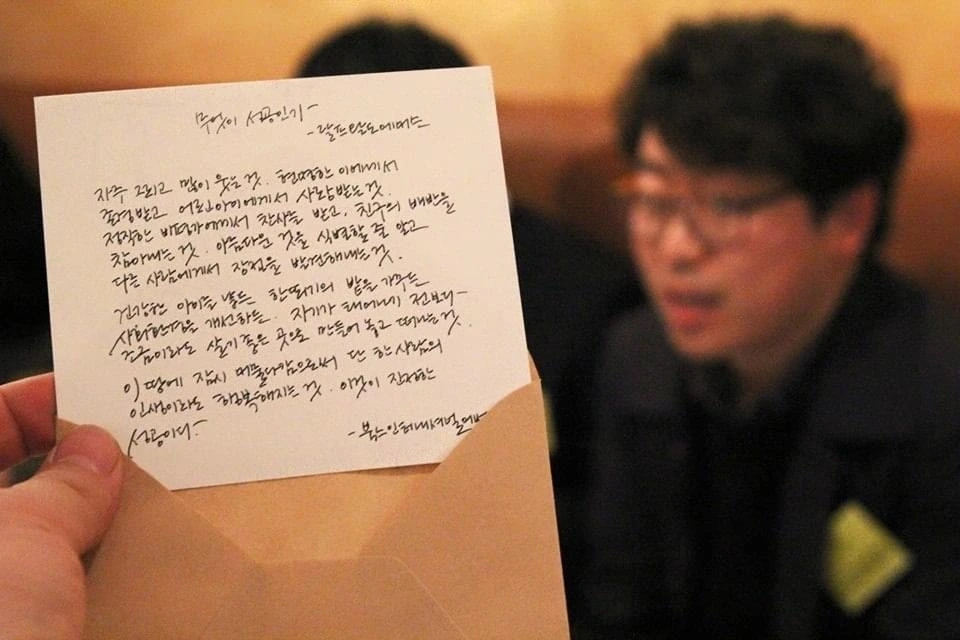 무엇이 성공인가-
-랄프 왈도 에머슨
자주 그리고 많이 웃는 것. 현명한 이에게서
존경받고 어린아이에게서 사랑받는 것.
정직한 비평가에게서 찬사를 받고, 친구의 배반을
참아내는 것. 아름다운 것을 식별할 줄 알고
다른 사람에게서 장점을 발견해내는 것.
건강한 아이를 낳든 한 뙈기의 밭을 가꾸든
사회환경을 개선하든 자기가 태어나기 전보다-
조금이라도 살기 좋은 곳으로 만들어 놓고 떠나는 것.
이 땅에 잠시 머물다 감으로써 단 한 사람의
인생이라도 행복해지는 것. 이것이 진정한
성공이다-
-북스인터내셔널